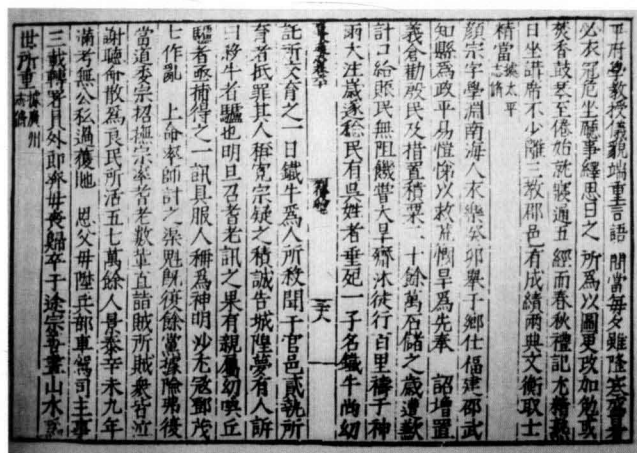 平府學教授儀觀端重言語間當每夕雖隆寒盛暑
必衣冠危坐廳事繹思日之所為以圖更改加勉或
焚香鼓琴至倦始就寢通五經而春秋禮記尤精熟
日坐講席不少離三教郡邑有成績兩典文衡取士
精當 據太平志脩
顏宗字學淵南海人永樂癸卯舉于鄉仕福建邵武
知縣為政平易愷悌以救荒憫旱為先奉 詔增置
義倉勸殷民及措置積粟二十餘萬石儲之歲遭歉
計口給賑民無阻饑嘗大旱齋沐徒行百里禱于神
雨大注歲遂稔民有吳姓者垂死一子名鐵牛尚幼
託所交育之一日鐵牛為人所殺聞于官邑貳執所
育者抵罪其人稱冤宗疑之積誠告城隍夢有人訴
曰殺牛者驢也明旦召耆老訊之果有親屬幼喚丘
驢者亟捕得之一訊具服人稱為神明沙尤寇鄧茂
七作亂 上命率師討之渠魁既殄餘黨據險弗後
當道委宗招撫宗率耆老數輩直詣賊所賊衆皆泣
謝聽命散為良民所活五七萬餘人景泰辛未九年
滿考無公私過獲貤 恩父母陞兵部車駕司主事
三載轉署員外郎奔母喪歸卒于途宗善畫山水為
世所重 據廣州志脩